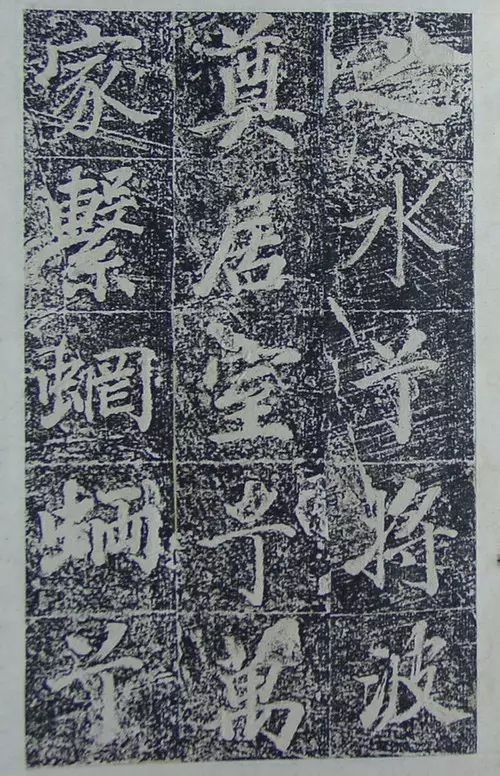 之水兮將波
奠居室兮萬
家繫蝄蜽兮